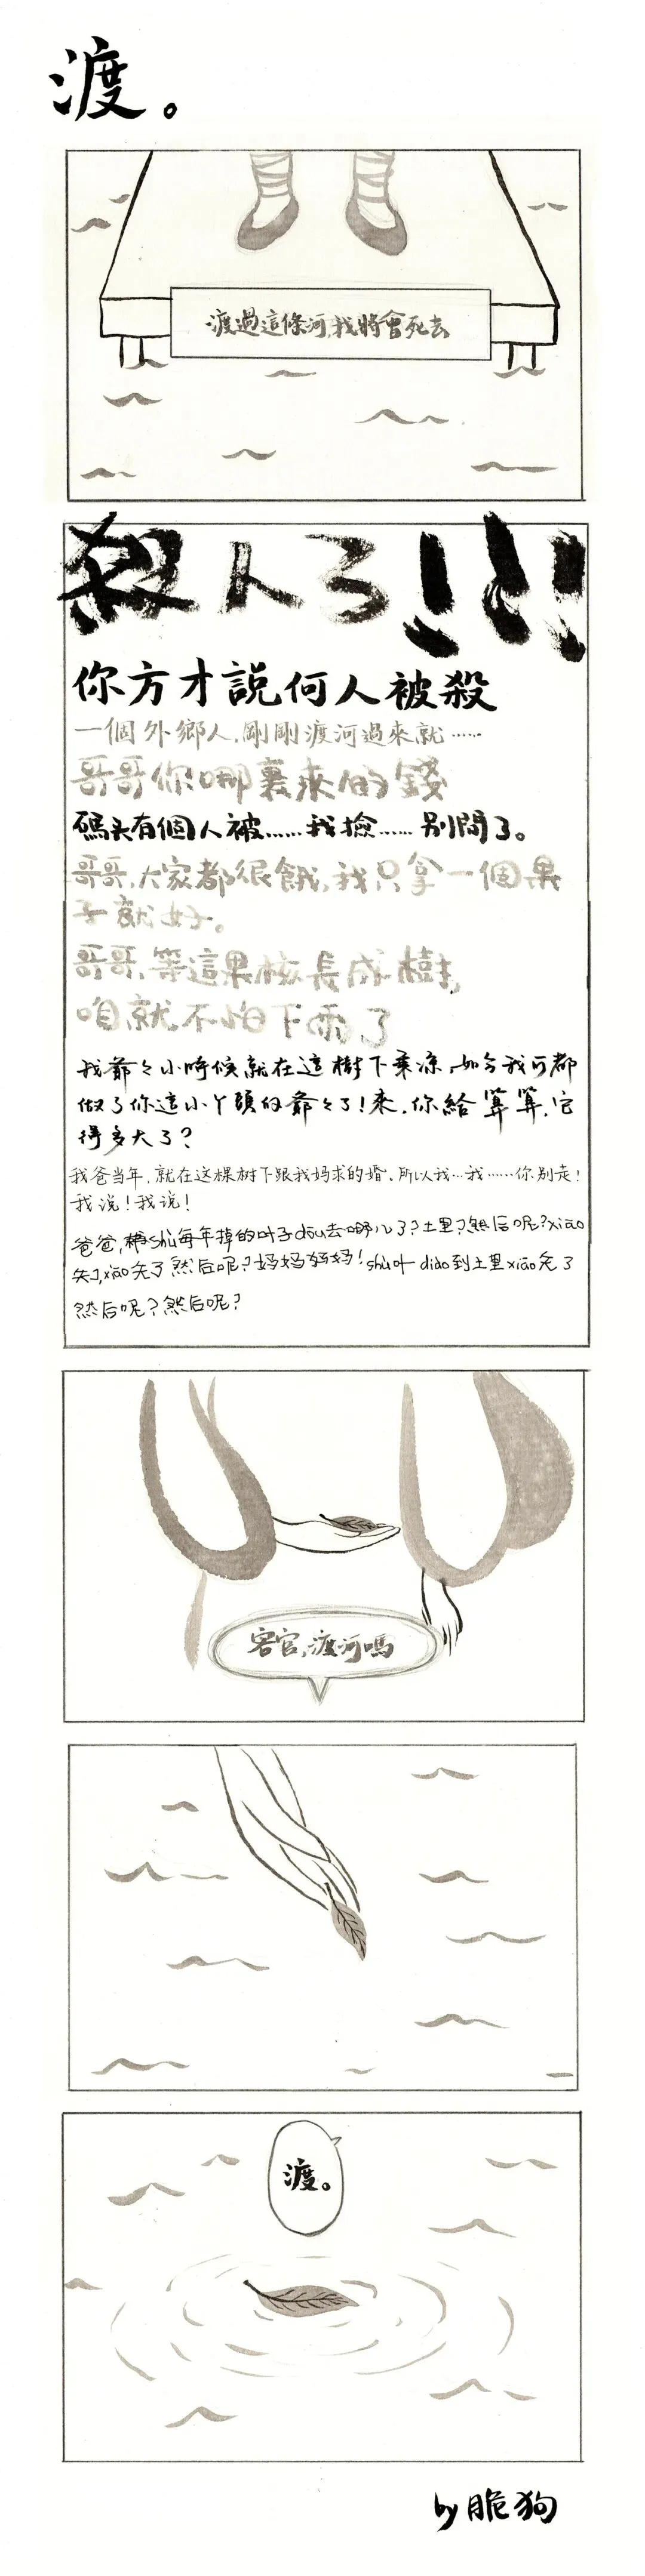 渡。
渡過這條河,我將會死去
殺人了!!!
你方才說何人被殺
一個外鄉人,剛剛渡河過來就……
哥哥你哪裏來的錢
碼头有個人被……我撿……别問了。
哥哥,大家都很餓,我只拿一個果
子就好。
哥哥,等這果核長成樹,
咱就不怕下雨了
我爺々小時候就在這樹下乘凉,如今我可都
做了你這小丫頭的爺々了!來,你給算算,它
得多大了?
我爸当年,就在这棵树下跟我妈求的婚,所以我…我……你别走!
我说!我说!
爸爸,shù每年掉的叶子dōu去哪儿了?土里?然后呢?xiāo
失了,xiāo失了然后呢?妈妈妈妈!shù叶diào到土里xiāo失了
然后呢?然后呢?
客官,渡河嗎
渡。
by脆狗